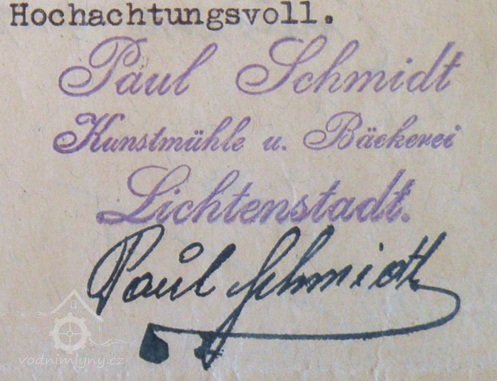 Hochachtungsvoll.
Paul Schmidt
Kunstmühle u. Bäckerei
Lichtenstadt.
Paul Schmidt
vodnimlyny.cz